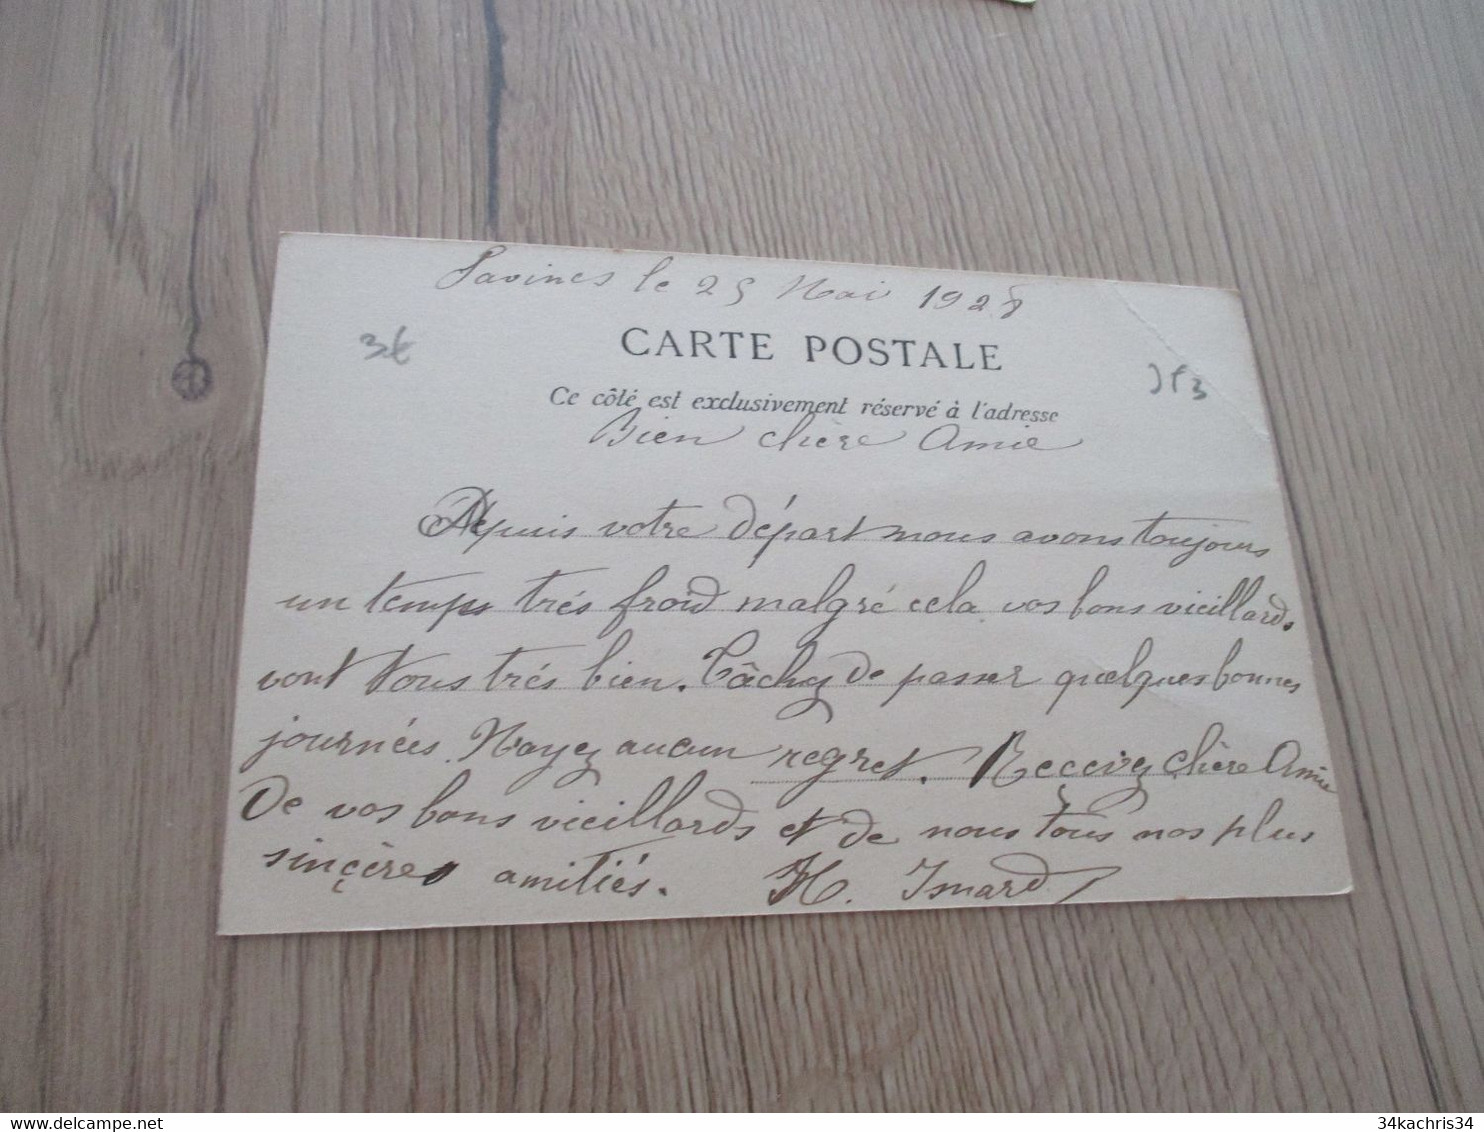 Savines le 25 Mai 1928
CARTE POSTALE
3€
Ce côté est exclusivement réservé à l'adresse
Bien chère Amie
Depuis votre départ nous avons toujours
un temps très froid malgré cela vos bons vieillards.
vont tous très bien. Tâchez de passer quelques bonnes
journées. N'ayez aucun regret. Recevez chère Amie
De vos bons vieillards et de nous tous nos plus
sincères amitiés. H. Isnard
34kachris34
delcampe.net